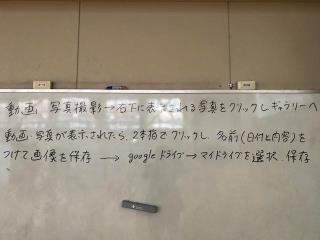 動画 写真撮影→右下に表示される写真をクリックしギャラリーへ
動画・写真が表示されたら、2本指でクリックし 名前(日付と内容)を
つけて画像を保存 → googleドライブ→マイドライブを選択 保存